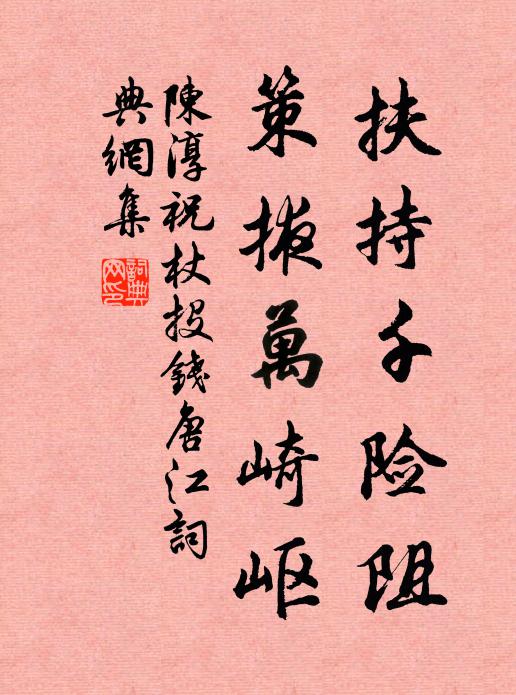 扶持千险阻
策掖萬崎岖
陳淳祝杖投錢唐江詞
典網集
詞典網印